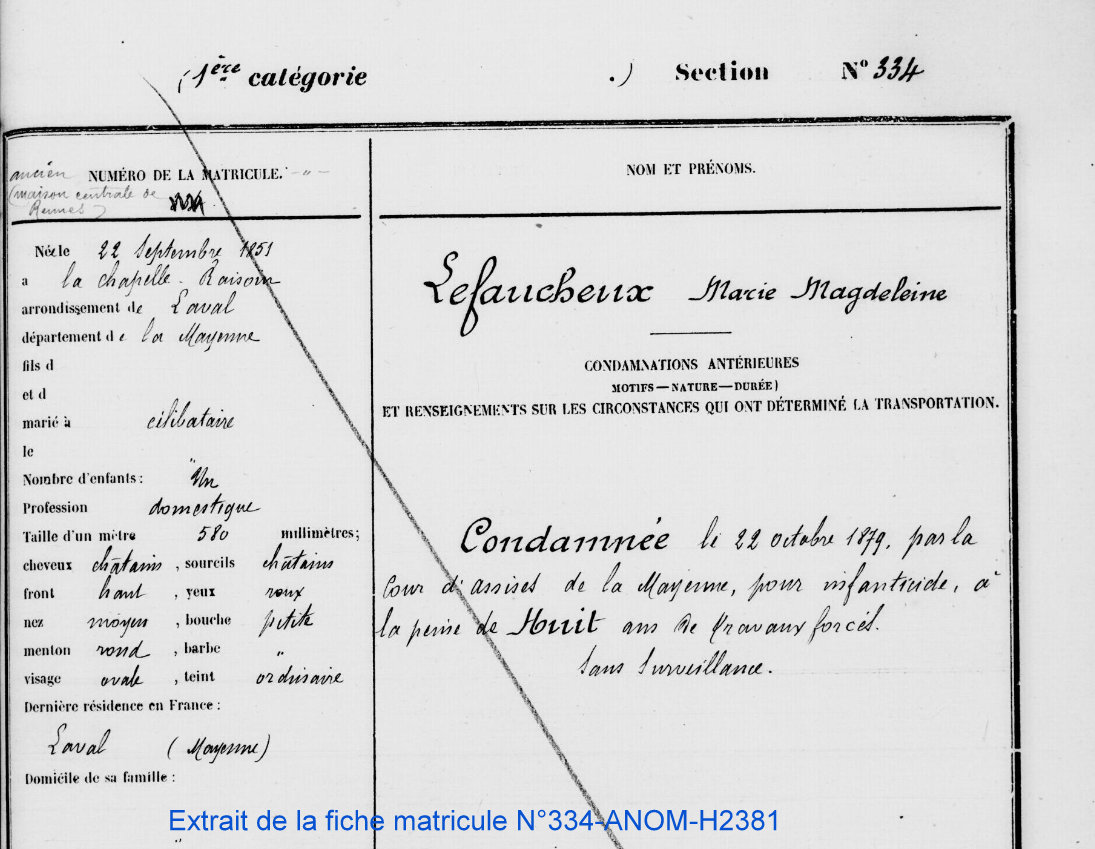 (1ère catégorie .) Section N° 334
ancien NUMÉRO DE LA MATRICULE. - " -
(maison centrale de
Rennes)
Née le 22 Septembre 1851
a la chapelle - Raisouin
arrondissement de Laval
département de la Mayenne
fils d
et d
marié à célibataire
le "
Nombre d'enfants : Un
Profession domestique
Taille d'un mètre 580 millimètres;
cheveux châtains , sourcils châtains
front haut , yeux roux
nez moyen , bouche petite
menton rond , barbe "
visage ovale , teint ordinaire
Dernière résidence en France :
Laval (Mayenne)
Domicile de sa famille :
"
NOM ET PRÉNOMS.
Lefaucheux Marie Magdeleine
CONDAMNATIONS ANTÉRIEURES
MOTIFS — NATURE — DURÉE)
ET RENSEIGNEMENTS SUR LES CIRCONSTANCES QUI ONT DÉTERMINÉ LA TRANSPORTATION.
Condamnée le 22 octobre 1879, par la
Cour d'assises de la Mayenne, pour infanticide, à
la peine de Huit ans de travaux forcés.
Sans Surveillance.
Extrait de la fiche matricule N°334-ANOM-H2381